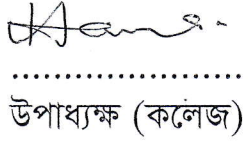 উপাধ্যক্ষ (কলেজ)